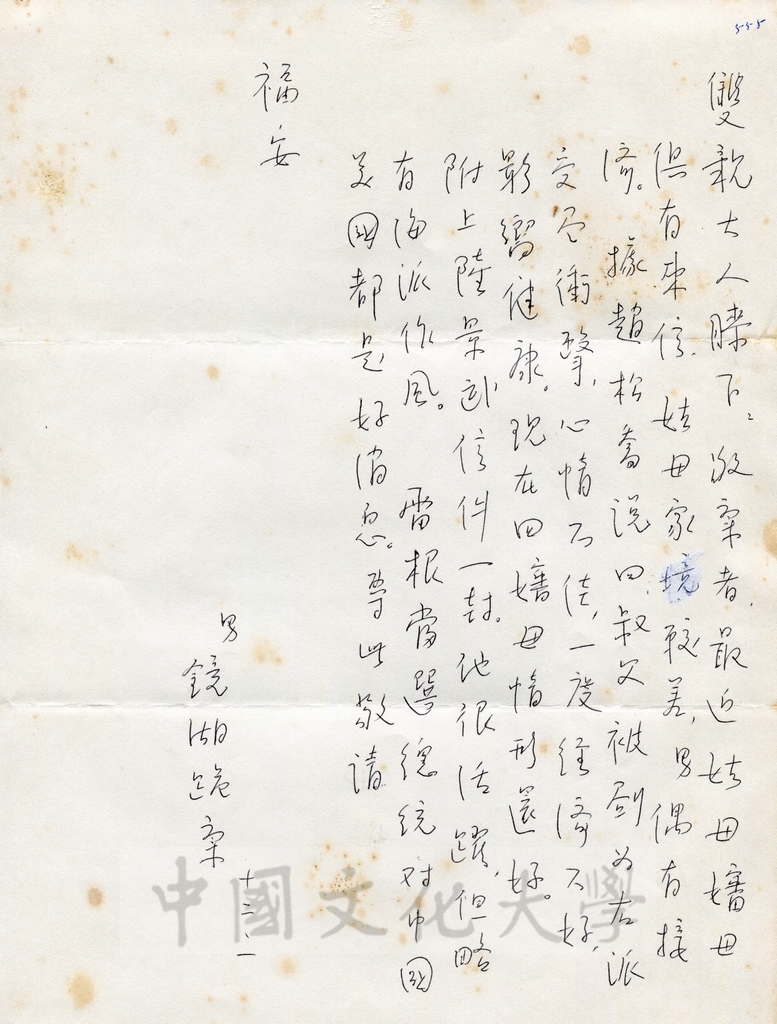 555
雙親大人膝下：敬稟者，最近姑母嬸母
俱有來信，姑母家境較差，男偶有接
濟。據趙松喬說四叔父被劃为右派
受尽衝擊，心情不佳，一度经濟不好，
影響健康。現在四嬸母情形還好。
附上陸景武信件一封。他很活躍，但略
有海派作風。雷根當選總統对中國
美國都是好消息。專此敬請
福安
男
鏡湖跪稟
十二、一
中國文化大學